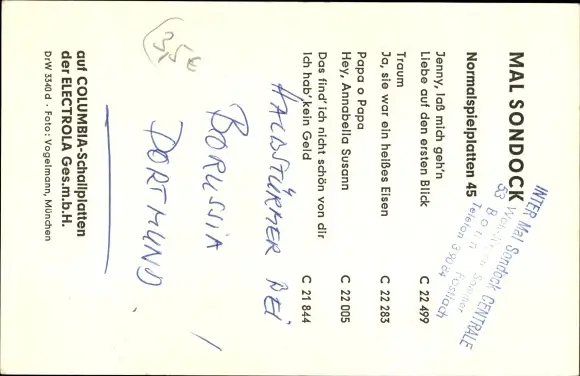 MAL SONDOCK
Normalspielplatten 45
Jenny, laß mich geh'n
Liebe auf den ersten Blick C 22 499
Traum
Ja, sie war ein heißes Eisen C 22 283
Papa o Papa
Hey, Annabella Susann C 22 005
Das find' ich nicht schön von dir
Ich hab' kein Geld C 21 844
auf COLUMBIA-Schallplatten
der ELECTROLA Ges.m.b.H.
DrW 3340 d · Foto: Vogelmann, München
INTER Mal Sondock CENTRALE
53 Bonn Postfach
Telefon
HALBSTÜRMER BEI
BORUSSIA
DORTMUND
3,5 €